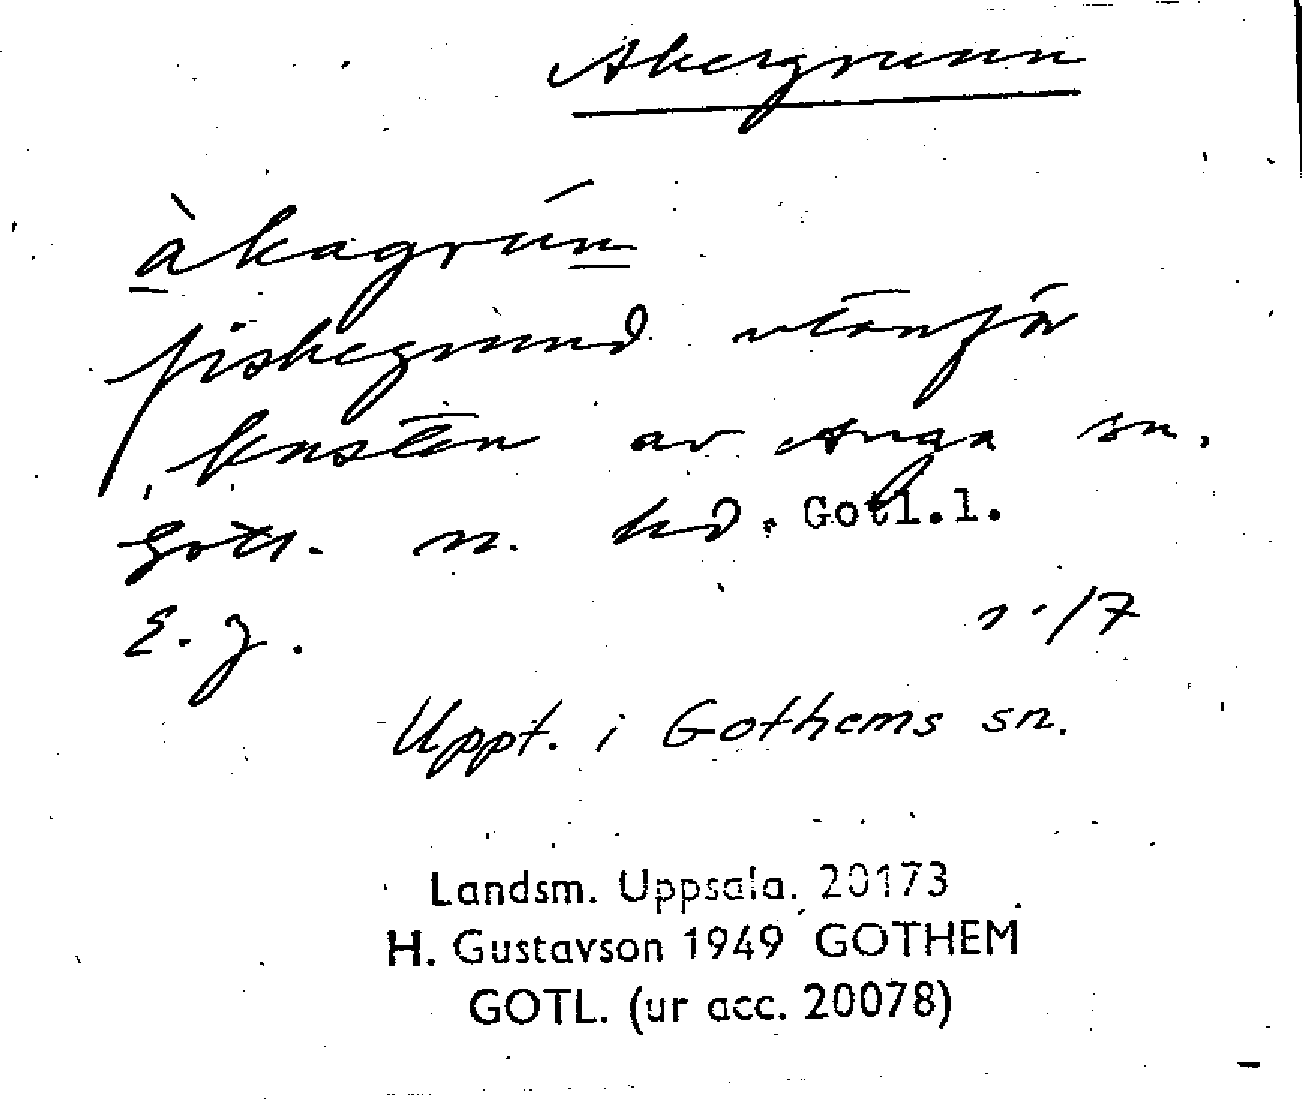 Akergrunn
àkagrún
fiskegrund utanför
kusten av Anga sn.
Gotl. n. hd. Gotl.l.
E. J.
/7
Uppt. i Gothems sn.
Landsm. Uppsala. 20173
H. Gustavson 1949 GOTHEM
GOTL. (ur acc. 20078)